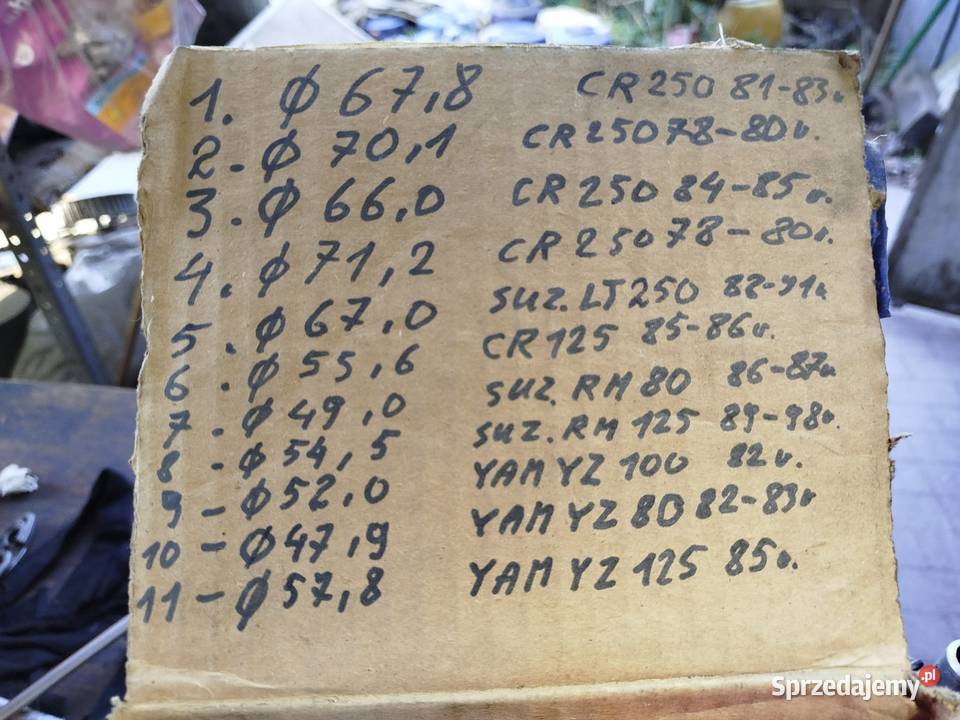 1. Ø 67,8 CR 250 81-83r.
2. Ø 70,1 CR 250 78-80r.
3. Ø 66,0 CR 250 84-85r.
4. Ø 71,2 CR 250 78-80r.
5. Ø 67,0 SUZ. LT 250 82-91r
6. Ø 55,6 CR 125 85-86r.
7. Ø 49,0 SUZ. RM 80 86-87r
8 - Ø 54,5 SUZ. RM 125 89-98r.
9 - Ø 52,0 YAM YZ 100 82r.
10 - Ø 47,9 YAM YZ 80 82-83r
11 - Ø 57,8 YAM YZ 125 85r.
Sprzedajemy.pl